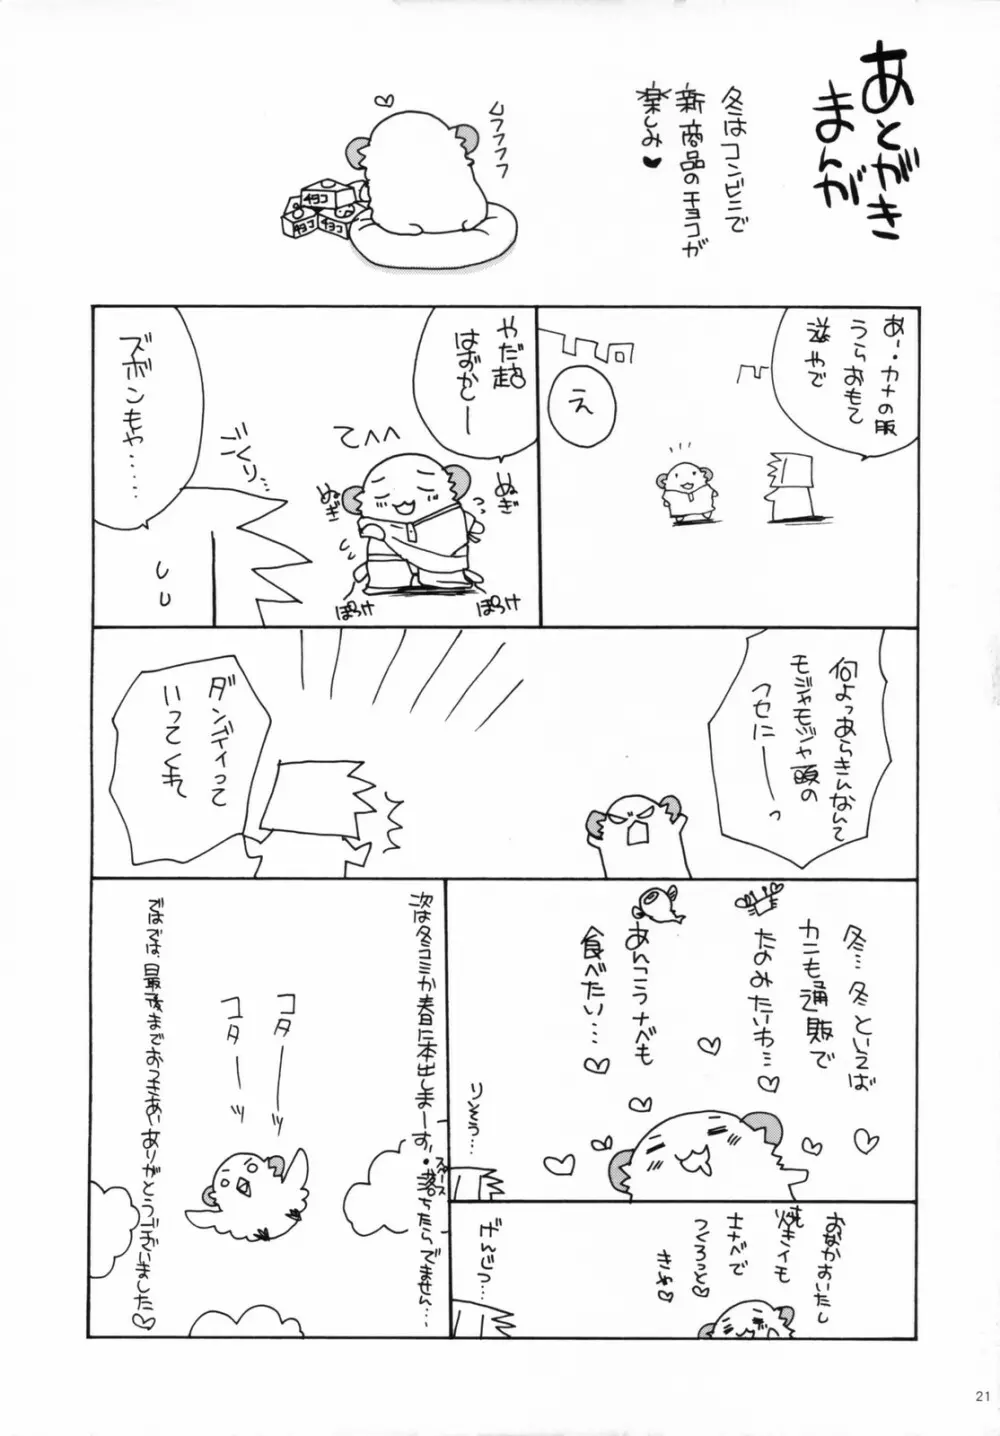 あとがき
まんが
冬はコンビニで
新商品のチョコが
楽しみ♥
ムフフフフ
チョコ
チョコ
チョコ
あー・カナの服
うらおもて
逆やで
え
やだ超
はおかしー
てへへ
ぬぎ
ぬぎ
ぽろけ
ぽろけ
ごくり…
ズボンもや‥‥‥
何よっあらきんなんて
モジャモジャ頭の
クセにーーっ
ダンディって
いってくれ
冬…冬といえば
カニも通販で
たのみたいわ…♡
あんこうナベも
食べたい…♡
リッそう…
おなかおいたし
焼きイモ
土ナベで
つくろっと♡
きゃ♡
げんじつ…
次は冬コミか春に本出しまーす。・スペース落ちたらでません…
コターーッ
コターーッ
ではでは、最後までおつきあいありがとうございました♡
21